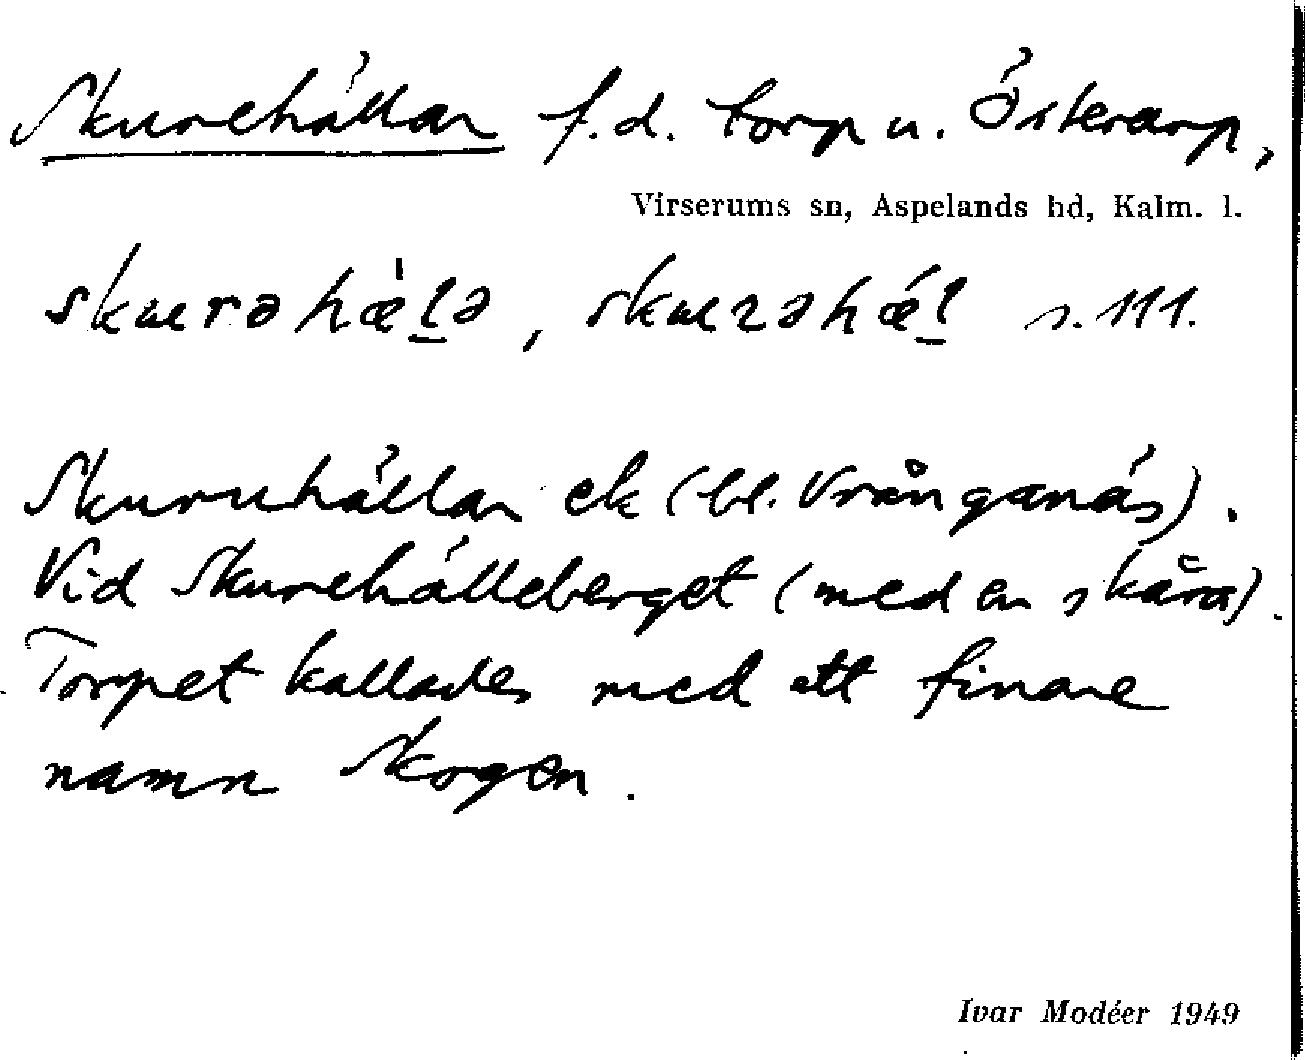 Skurehällar f.d. torp u. Österarp,
Virserums sn, Aspelands hd, Kalm. l.
skurəhæ̀lə, skurəhǽl s. 111.
Skuruhällar ek (bl. Vrånganäs).
Vid Skurehälleberget (med en skåra).
Torpet kallades med ett finare
namn Skogen.
Ivar Modéer 1949